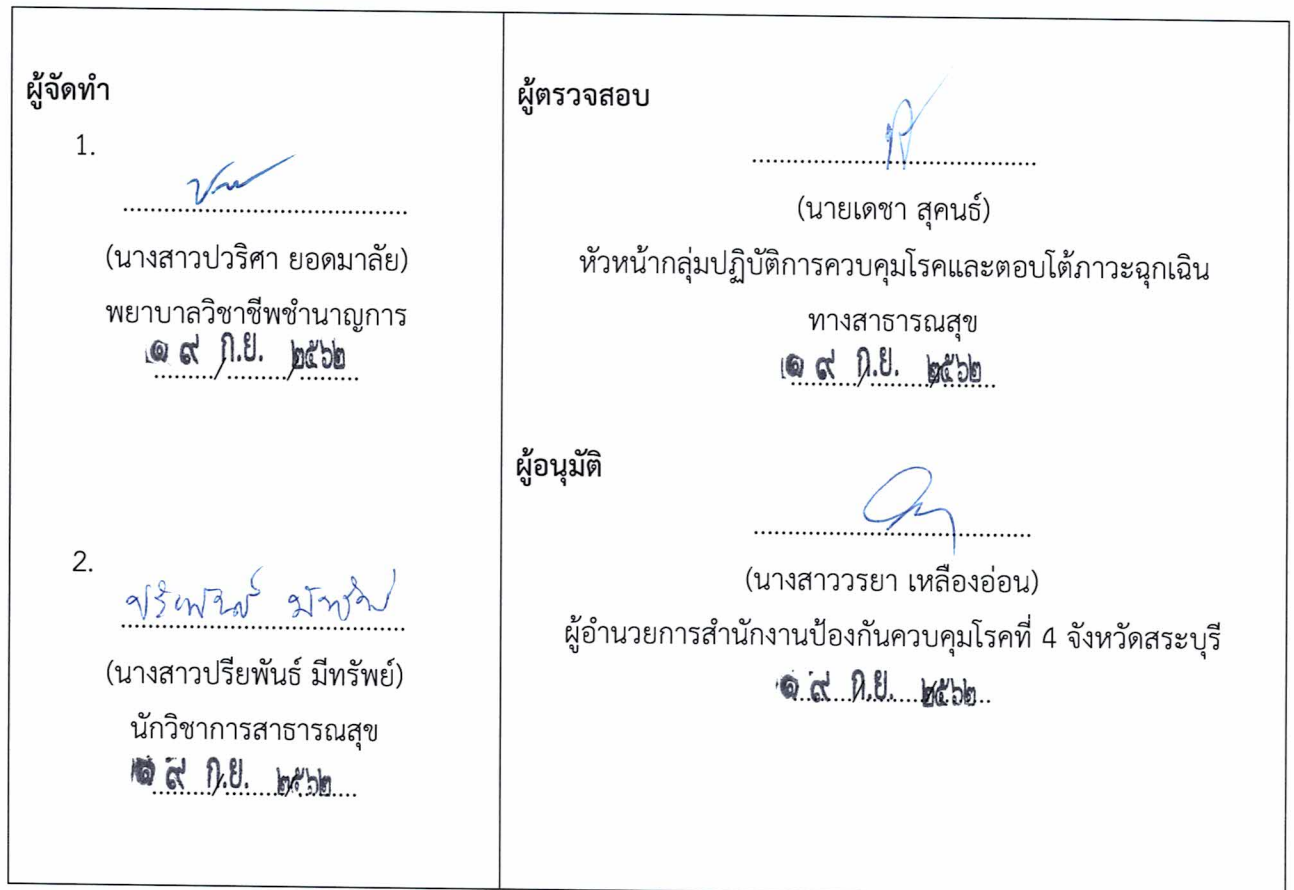 ผู้จัดทำ
1.
(นางสาวปวริศา ยอดมาลัย)
พยาบาลวิชาชีพชำนาญการ
๑๙ ก.ย. ๒๕๖๒
2.
ปรียพันธ์ มีทรัพย์
(นางสาวปรียพันธ์ มีทรัพย์)
นักวิชาการสาธารณสุข
๑๙ ก.ย. ๒๕๖๒
ผู้ตรวจสอบ
(นายเดชา สุคนธ์)
หัวหน้ากลุ่มปฏิบัติการควบคุมโรคและตอบโต้ภาวะฉุกเฉิน
ทางสาธารณสุข
๑๙ ก.ย. ๒๕๖๒
ผู้อนุมัติ
(นางสาววรยา เหลืองอ่อน)
ผู้อำนวยการสำนักงานป้องกันควบคุมโรคที่ 4 จังหวัดสระบุรี
๑๙ ก.ย. ๒๕๖๒